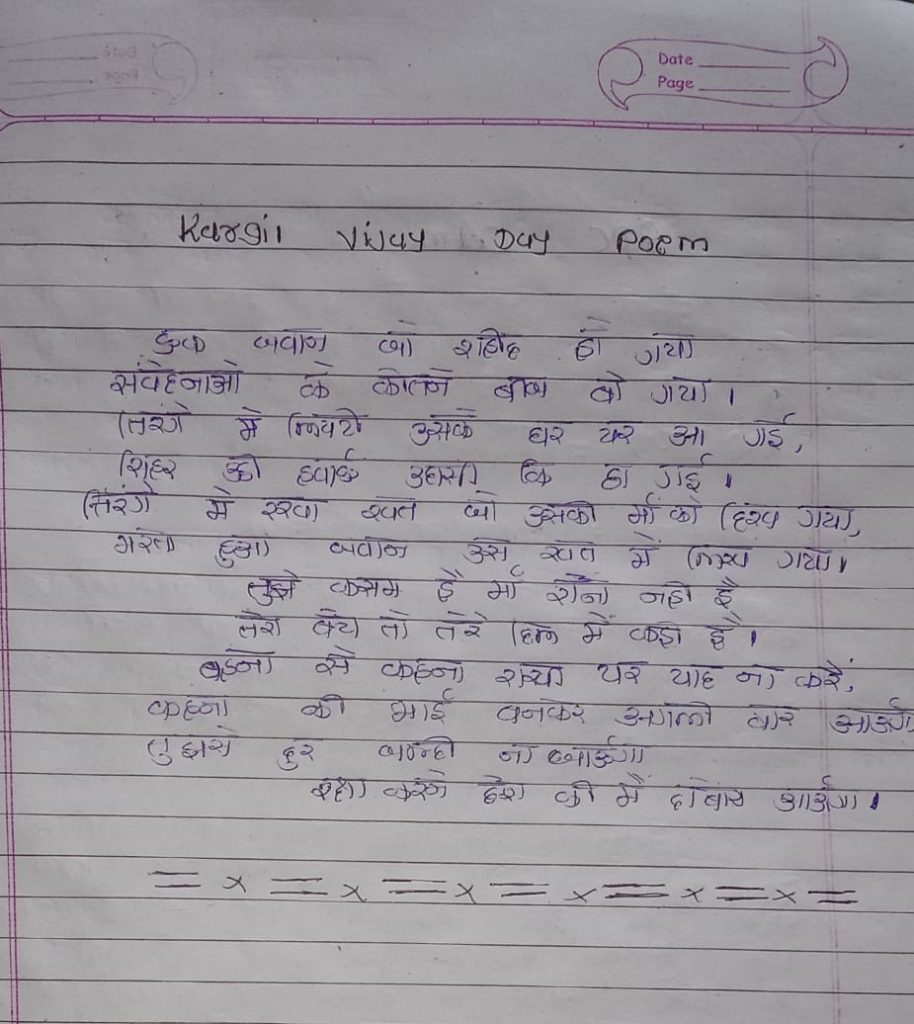 Date
Page
Kargil Vijay Day Poem
एक जवान जो शहीद हो गया
संवेदनाओ के कीतने बीज बो गया।
तिरंगे मे लिपटी उसके घर पर आ गई,
शहिर की हवाऐ उदासी कि हा गई।
तिरंगे मे रखा खत जो उसकी माँ को दिख गया,
मरता हुआ जवान उस खत में लिख गया।
तुझे कसम है माँ रोना नही है
तेरा तो तेरे दिल में कही है।
बहना से कहना राखी पर याद ना करे,
कहना की भाई बनकर अगली बार आऊंगा
तुझसे दुर जल्दी ना जाऊंगा
रक्षा करने देश की मैं दोबारा आऊंगा।
= x = x = x = x = x = x =